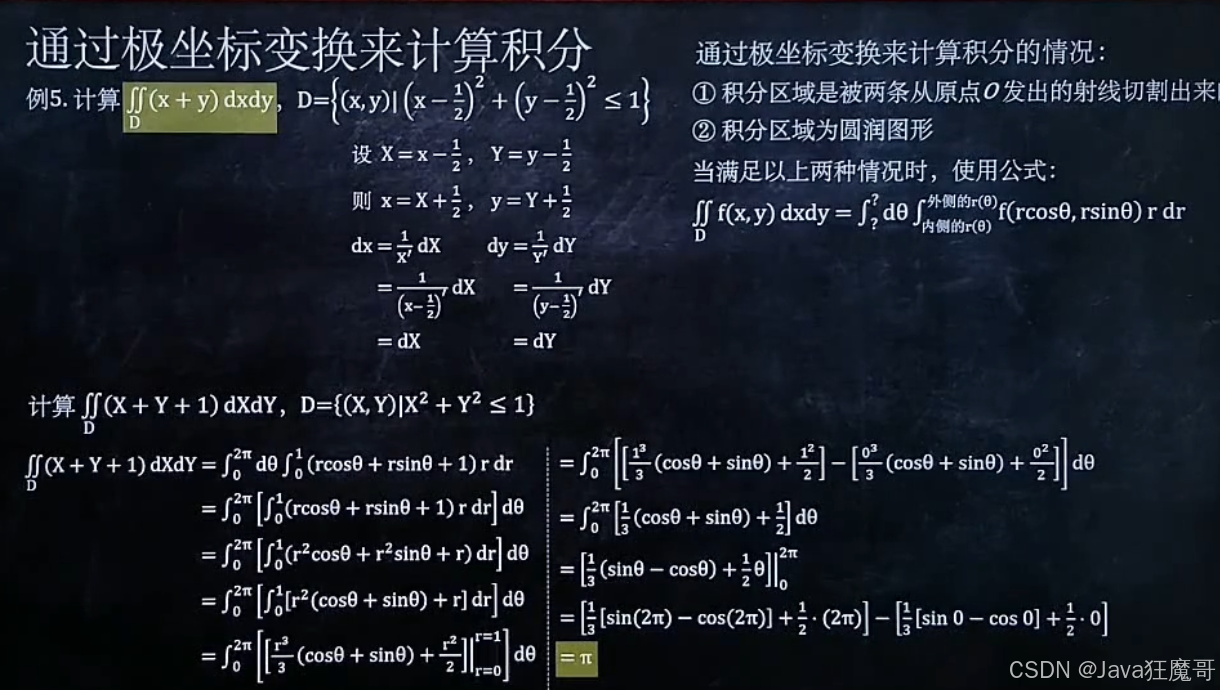 通过极坐标变换来计算积分
例5. 计算 ∬_D (x + y) dxdy，D={(x, y)| (x − 1/2)² + (y − 1/2)² ≤ 1}
设 X = x − 1/2，Y = y − 1/2
则 x = X + 1/2，y = Y + 1/2
dx = 1/X′ dX dy = 1/Y′ dY
= 1/(x − 1/2)′ dX = 1/(y − 1/2)′ dY
= dX = dY
通过极坐标变换来计算积分的情况：
① 积分区域是被两条从原点O 发出的射线切割出来
② 积分区域为圆润图形
当满足以上两种情况时，使用公式：
∬_D f(x, y) dxdy = ∫_?^? dθ ∫_内侧的r(θ)^外侧的r(θ) f(rcosθ, rsinθ) r dr
计算 ∬_D (X + Y + 1) dXdY，D={(X, Y)|X² + Y² ≤ 1}
∬_D (X + Y + 1) dXdY = ∫_0^2π dθ ∫_0^1 (rcosθ + rsinθ + 1) r dr
= ∫_0^2π [∫_0^1 (rcosθ + rsinθ + 1) r dr] dθ
= ∫_0^2π [∫_0^1 (r²cosθ + r²sinθ + r) dr] dθ
= ∫_0^2π [∫_0^1 [r²(cosθ + sinθ) + r] dr] dθ
= ∫_0^2π [[r³/3 (cosθ + sinθ) + r²/2]|_r=0^r=1] dθ
= ∫_0^2π [[1³/3 (cosθ + sinθ) + 1²/2] − [0³/3 (cosθ + sinθ) + 0²/2]] dθ
= ∫_0^2π [1/3 (cosθ + sinθ) + 1/2] dθ
= [1/3 (sinθ − cosθ) + 1/2 θ]|_0^2π
= [1/3 [sin(2π) − cos(2π)] + 1/2 · (2π)] − [1/3 [sin 0 − cos 0] + 1/2 · 0]
= π
CSDN @Java狂魔哥